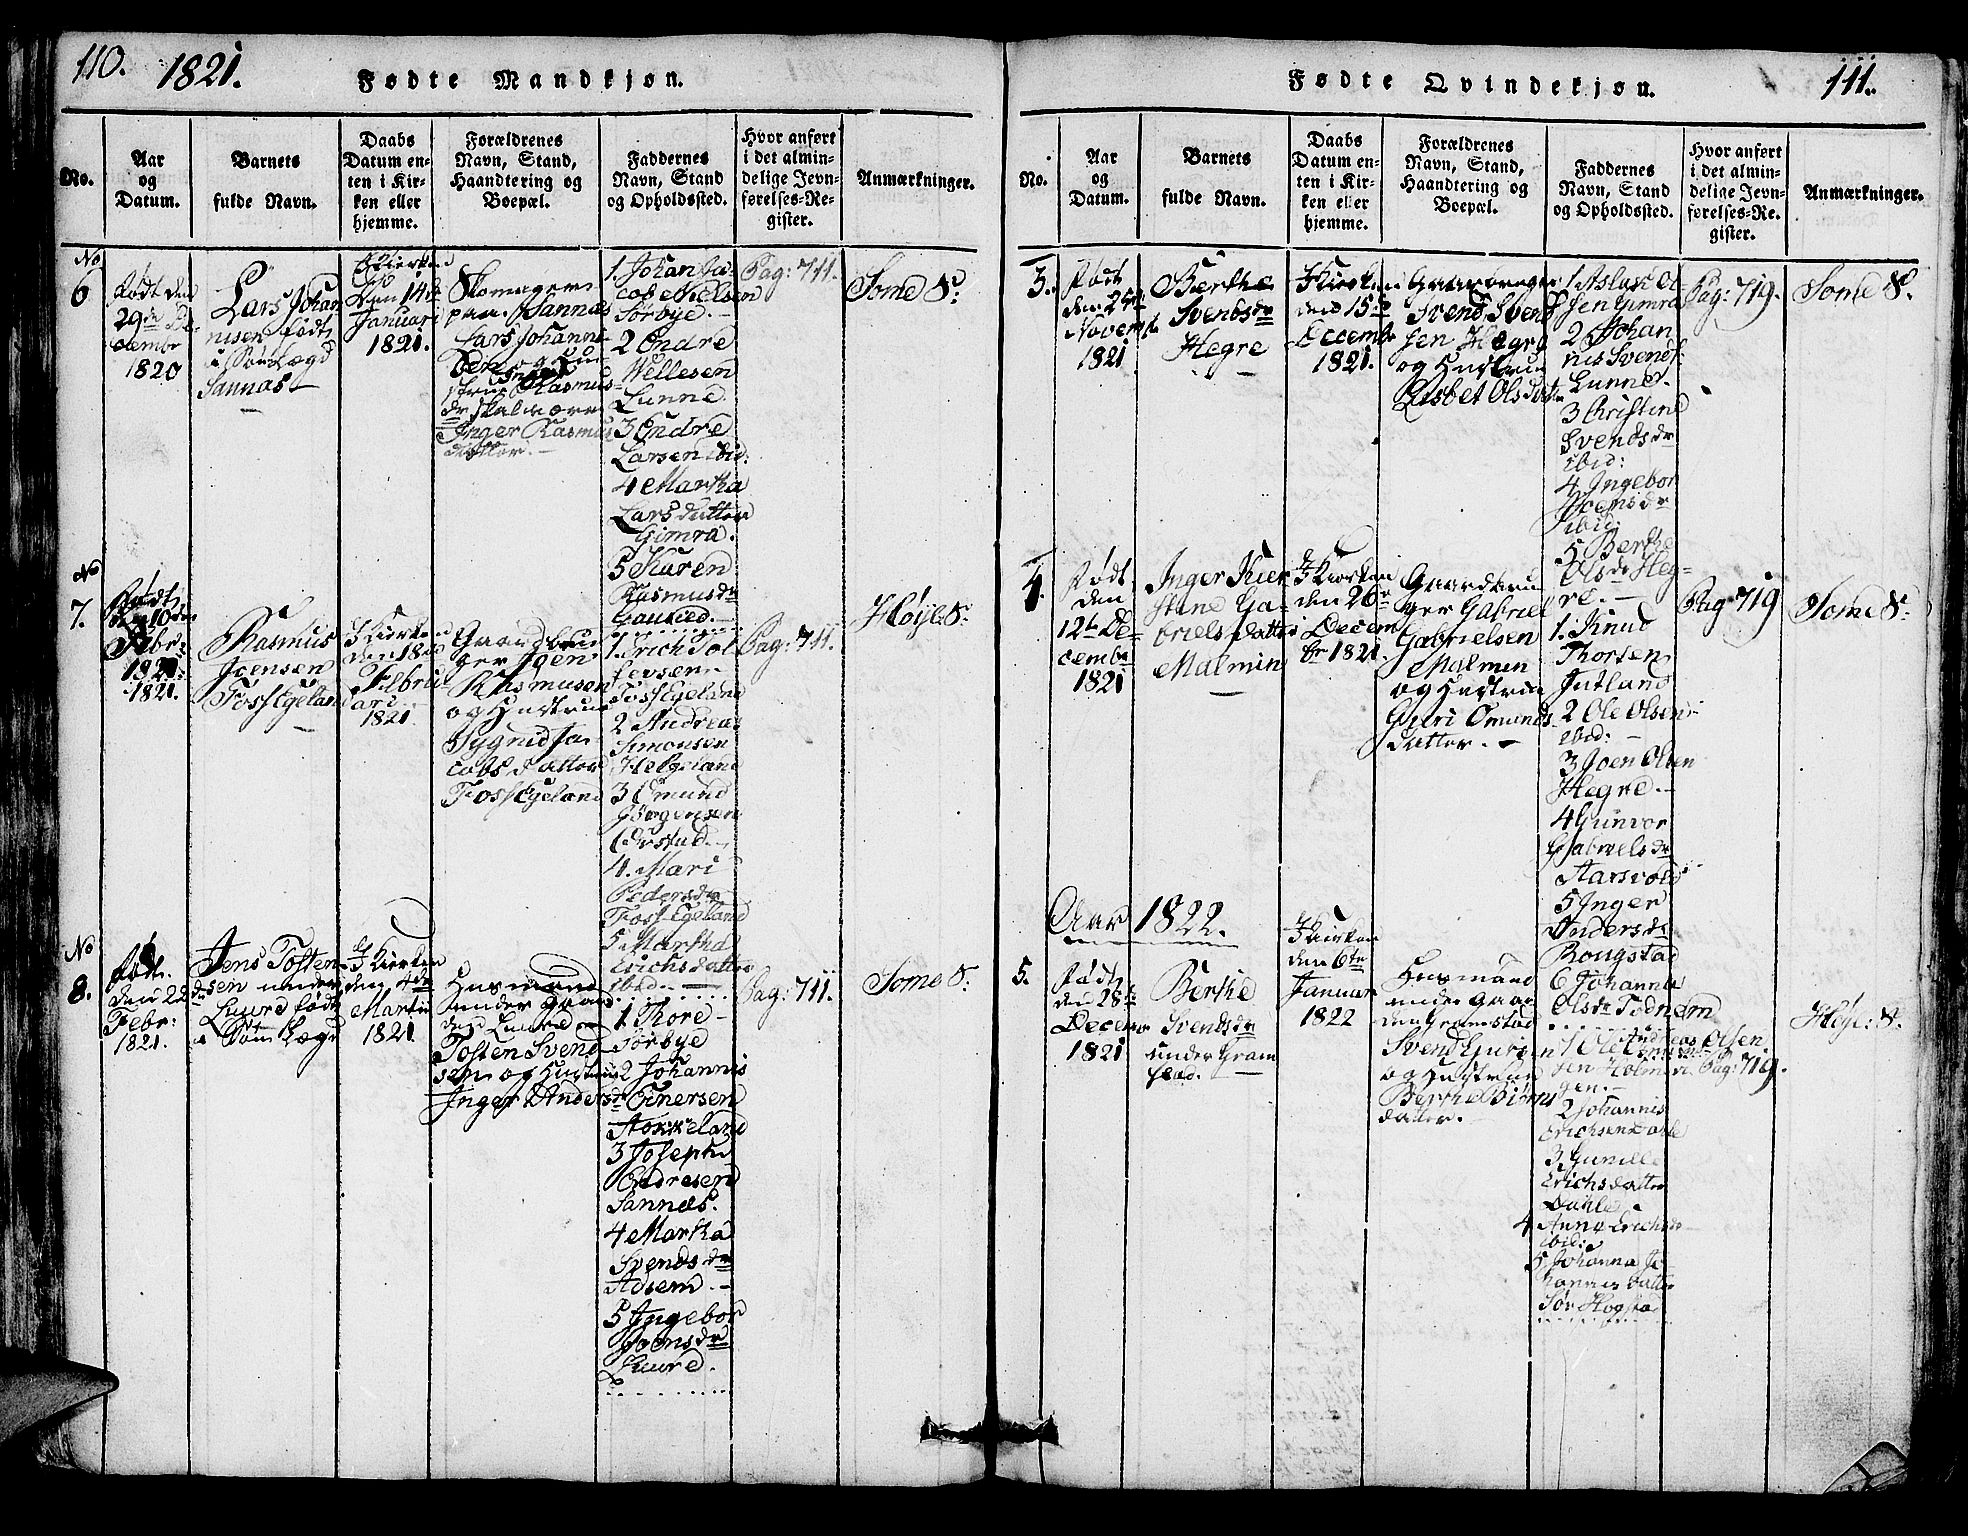 110.
1821.
Fødte Mandkjøn.
No.
Aar
og
Datum.
Barnets
fulde Navn.
Daabs
Datum en-
ten i Kir-
ken eller
hjemme.
Forældrenes
Navn, Stand,
Haandtering og
Boepæl.
Faddernes
Navn, Stand
og Opholdssted.
Hvor anført
i det almin-
delige Jevn-
førelses-Re-
gister.
Anmærkninger.
No
6
Født den
29de De-
cembr
1820
Lars Johan
nisen født
Sannas
I Kierken
den 14de
Januari
1821.
Skomager
paa Sannas
Lars Johanni-
sen og Hu-
strue Rasmus-
dr Skalværn
Inger Rasmus
datter.
1. Johan Ja-
cob Nielsen
Sørbye.
2 Endre
Wellesen
Lunne.
3 Endre
Larsen ibid:
4 Martha
Lars dutter
Gimra.
5 Karen
Rasmusdr
Gauked.
Pag: 711.
Some S.
No
7.
Født
den 10de
Febr:
1821.
1821.
Rasmus
Joensen
Foss Egeland
I Kierken
den 18de
Febru
ari
1821
Gaardbru
ger Joen
Rasmusen
og Hustrue
Sygnid Ja-
cobs datter
Foss Egeland
1. Erich Tol
levsen
Foss Egeland
2 Andreas
Simonsen
Helgeland
3 Omund
Jørgensen
Ørstad.
4. Mari
Pedersdr
Foss Egeland
5 Martha
Erichsdatter
ibid.
Pag: 711.
Høye S.
No
8.
Født
den 22de
Febr:
1821.
Jens Tosten-
sen under
Luure født
I Kierken
den 4de
Martii
1821
Husmand
under Gaar
den Luure
Tosten Svend
sen og Hustrue
Inger Andersdr
1 Thore
Sørbye
2 Johannis
Einersen
Aokkeland
3 Joseph
Endresen
Sannes.
4 Martha
Svendsdr
Adsem.
5 Ingebor
Joensdr
Luure.
Pag: 711.
Some S.
Fødte Qvindekjøn.
111.
No.
Aar
og
Datum.
Barnets
fulde Navn.
Daabs
Datum en-
ten i Kir-
ken eller
hjemme.
Forældrenes
Navn, Stand,
Haandtering og
Boepæl.
Faddernes
Navn, Stand
og Opholdssted.
Hvor anført
i det almin-
delige Jevn-
førelses-Re-
gister.
Anmærkninger.
3.
Født
den 24de
Novemb
1821
Berthe
Svendsdr
Hegre
I Kierken
den 15de
Decemb
1821.
Gaardbruger
Svend Svend
sen Hegre
og Hustrue
Lisbet Olsdatter
1 Aslach O-
sen Gimra
2 Johan
nis Svends
Lunne.
3 Christine
Svendsdr
ibid:
4 Ingebor
Joensdr
ibid:
5 Berthe
Olsdr Heg-
re.
Pag: 719.
Some S.
4.
Født
den
12te De-
cembr
1821
Inger Kier
stine Ga-
briels datter
Malmin
I Kierken
den 26de
Decem
br 1821.
Gaardbru
ger Gabriel
Gabrielsen
Malmen
og Hustrue
Guri Omunds-
datter.
1. Knud
Thorsen
Jutland
2 Ole Olsen
ibid:
3 Joen Olsen
Hegre.
4 Gunvor
Gabrielsdr
Aarsvold
5 Inger
Andersdr
Rougstad
6 Johanna
Olsdr Todnem
Pag 719
Some S.
Aar 1822.
5.
Født
den 28de
Decembr
1821
Berthe
Svendsdr
under Gram
stad.
I Kierken
den 6te
Januar
1822
Husmand
under Gaar
den Gramstad
Svend Guri sen
og Hustrue
Berthe Biørns
datter.
Andreas Olsen
1 Ole
Holmen
gen.
2 Johannis
Erichsen Dahle
3 Gunille
Erichsdatter
Dahle.
4 Anna Erichs
ibid:
5 Johanna Jo
hannis datter
Sør Hogsta
Pag: 719.
Høye: S.